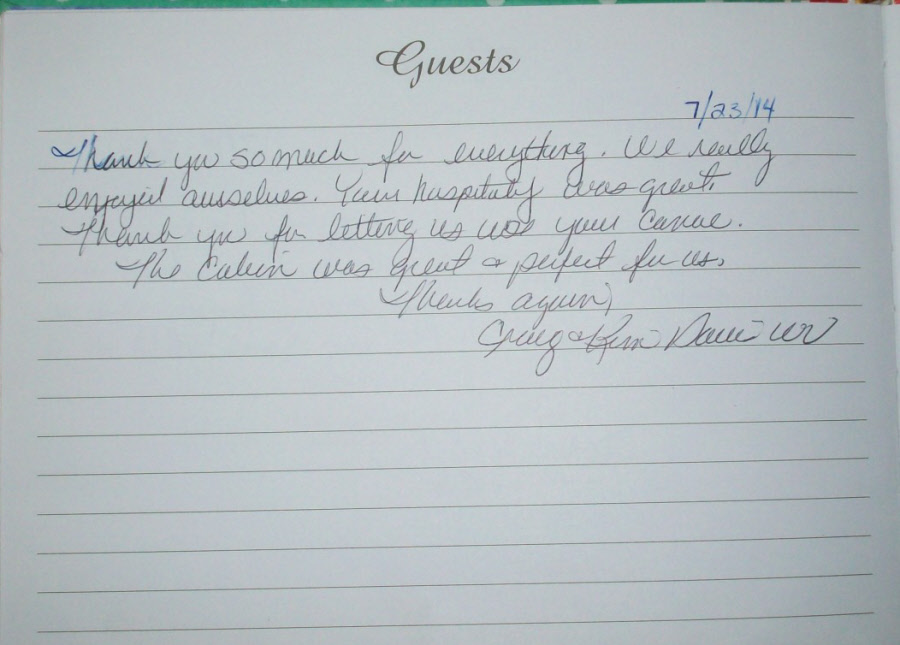 Guests
7/23/14
Thank you so much for everything. We really
enjoyed ourselves. Your hospitality was great.
Thank you for letting us use your Canoe.
The Cabin was great & perfect for us.
Thanks again,
Craig & Kim Davis WV